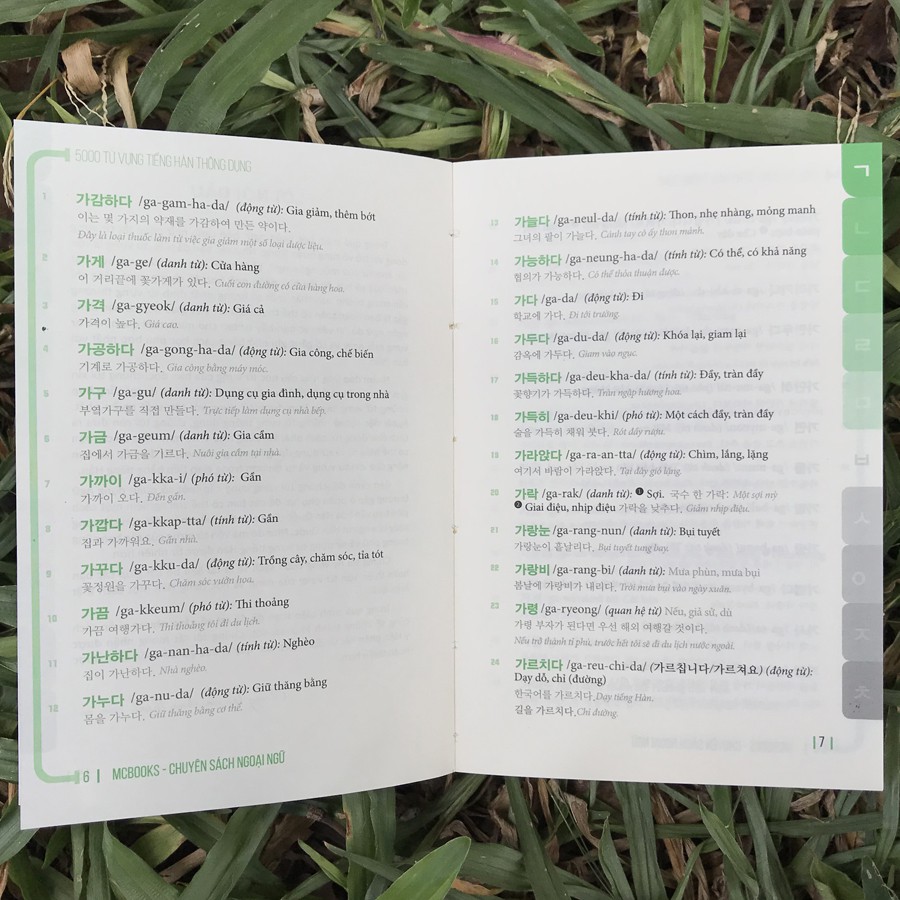 5000 TỪ VỰNG TIẾNG HÀN THÔNG DỤNG
1 가감하다 /ga-gam-ha-da/ (động từ): Gia giảm, thêm bớt
이는 몇 가지의 약재를 가감하여 만든 약이다.
Đây là loại thuốc làm từ việc gia giảm một số loại dược liệu.
2 가게 /ga-ge/ (danh từ): Cửa hàng
이 거리끝에 꽃가게가 있다. Cuối con đường có cửa hàng hoa.
3 가격 /ga-gyeok/ (danh từ): Giá cả
가격이 높다. Giá cao.
4 가공하다 /ga-gong-ha-da/ (động từ): Gia công, chế biến
기계로 가공하다. Gia công bằng máy móc.
5 가구 /ga-gu/ (danh từ): Dụng cụ gia đình, dụng cụ trong nhà
부엌가구를 직접 만들다. Trực tiếp làm dụng cụ nhà bếp.
6 가금 /ga-geum/ (danh từ): Gia cầm
집에서 가금을 기르다. Nuôi gia cầm tại nhà.
7 가까이 /ga-kka-i/ (phó từ): Gần
가까이 오다. Đến gần.
8 가깝다 /ga-kkap-tta/ (tính từ): Gần
집과 가까워요. Gần nhà.
9 가꾸다 /ga-kku-da/ (động từ): Trồng cây, chăm sóc, tỉa tót
꽃정원을 가꾸다. Chăm sóc vườn hoa.
10 가끔 /ga-kkeum/ (phó từ): Thi thoảng
가끔 여행가다. Thi thoảng tôi đi du lịch.
11 가난하다 /ga-nan-ha-da/ (tính từ): Nghèo
집이 가난하다. Nhà nghèo.
12 가누다 /ga-nu-da/ (động từ): Giữ thăng bằng
몸을 가누다. Giữ thăng bằng cơ thể.
6 | MCBOOKS - CHUYÊN SÁCH NGOẠI NGỮ
13 가늘다 /ga-neul-da/ (tính từ): Thon, nhẹ nhàng, mỏng manh
그녀의 팔이 가늘다. Cánh tay cô ấy thon mảnh.
14 가능하다 /ga-neung-ha-da/ (tính từ): Có thể, có khả năng
협의가 가능하다. Có thể thỏa thuận được.
15 가다 /ga-da/ (động từ): Đi
학교에 가다. Đi tới trường.
16 가두다 /ga-du-da/ (động từ): Khóa lại, giam lại
감옥에 가두다. Giam vào ngục.
17 가득하다 /ga-deu-kha-da/ (tính từ): Đầy, tràn đầy
꽃향기가 가득하다. Tràn ngập hương hoa.
18 가득히 /ga-deu-khi/ (phó từ): Một cách đầy, tràn đầy
술을 가득히 채워 붓다. Rót đầy rượu.
19 가라앉다 /ga-ra-an-tta/ (động từ): Chìm, lắng, lặng
여기서 바람이 가라앉다. Tại đây gió lặng.
20 가락 /ga-rak/ (danh từ): ❶ Sợi. 국수 한 가락: Một sợi mỳ
❷ Giai điệu, nhịp điệu 가락을 낮추다. Giảm nhịp điệu.
21 가랑눈 /ga-rang-nun/ (danh từ): Bụi tuyết
가랑눈이 흩날리다. Bụi tuyết tung bay.
22 가랑비 /ga-rang-bi/ (danh từ): Mưa phùn, mưa bụi
봄날에 가랑비가 내리다. Trời mưa bụi vào ngày xuân.
23 가령 /ga-ryeong/ (quan hệ từ) Nếu, giả sử, dù
가령 부자가 된다면 우선 해외 여행갈 것이다.
Nếu trở thành tỉ phú, trước hết tôi sẽ đi du lịch nước ngoài.
24 가르치다 /ga-reu-chi-da/ (가르칩니다/가르쳐요) (động từ):
Dạy dỗ, chỉ (đường)
한국어를 가르치다. Dạy tiếng Hàn.
길을 가르치다. Chỉ đường.
|7|
ㄱ
ㄴ
ㄷ
ㄹ
ㅁ
ㅂ
ㅅ
ㅇ
ㅈ
ㅊ